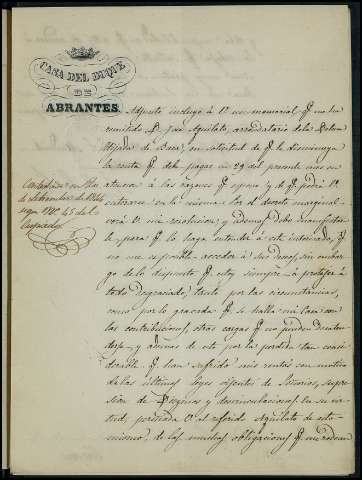 CASA DEL DUQUE
DE
ABRANTES.
Adjunto incluyo á V. un memorial q. me ha
remitido D. José Aguilete, arrendatario de la
de Baza, en solicitud de q. le disminuya
la renta q. debe pagar en 29 del presente mes en
atencion á las razones q. espone, y de q. podrá V.
enterarse en la misma, por el decreto marginal
verá V. mi resolucion, y además debo manifestar-
le, para q. lo haga entender á este interesado, q. no
me es posible acceder á sus deseos, sin embar-
go de lo dispuesto q. estoy siempre á proteger á
todo desgraciado, tanto por las circunstancias,
como por lo gravada q. se halla mi Casa con
las contribuciones, otras cargas q. no pueden desaten-
derse, y ademas de esto por la perdida tan consi-
derable q. han sufrido mis rentas con motivo
de las últimas leyes de Señorios, supre-
sion de Diezmos y desvinculaciones. En su vir-
tud, persuada V. al referido Aguilete de esto
mismo, de las muchas obligaciones q. me rodean
Contestada en
de Setiembre de 1844
segun Nº 45 del
Copiador